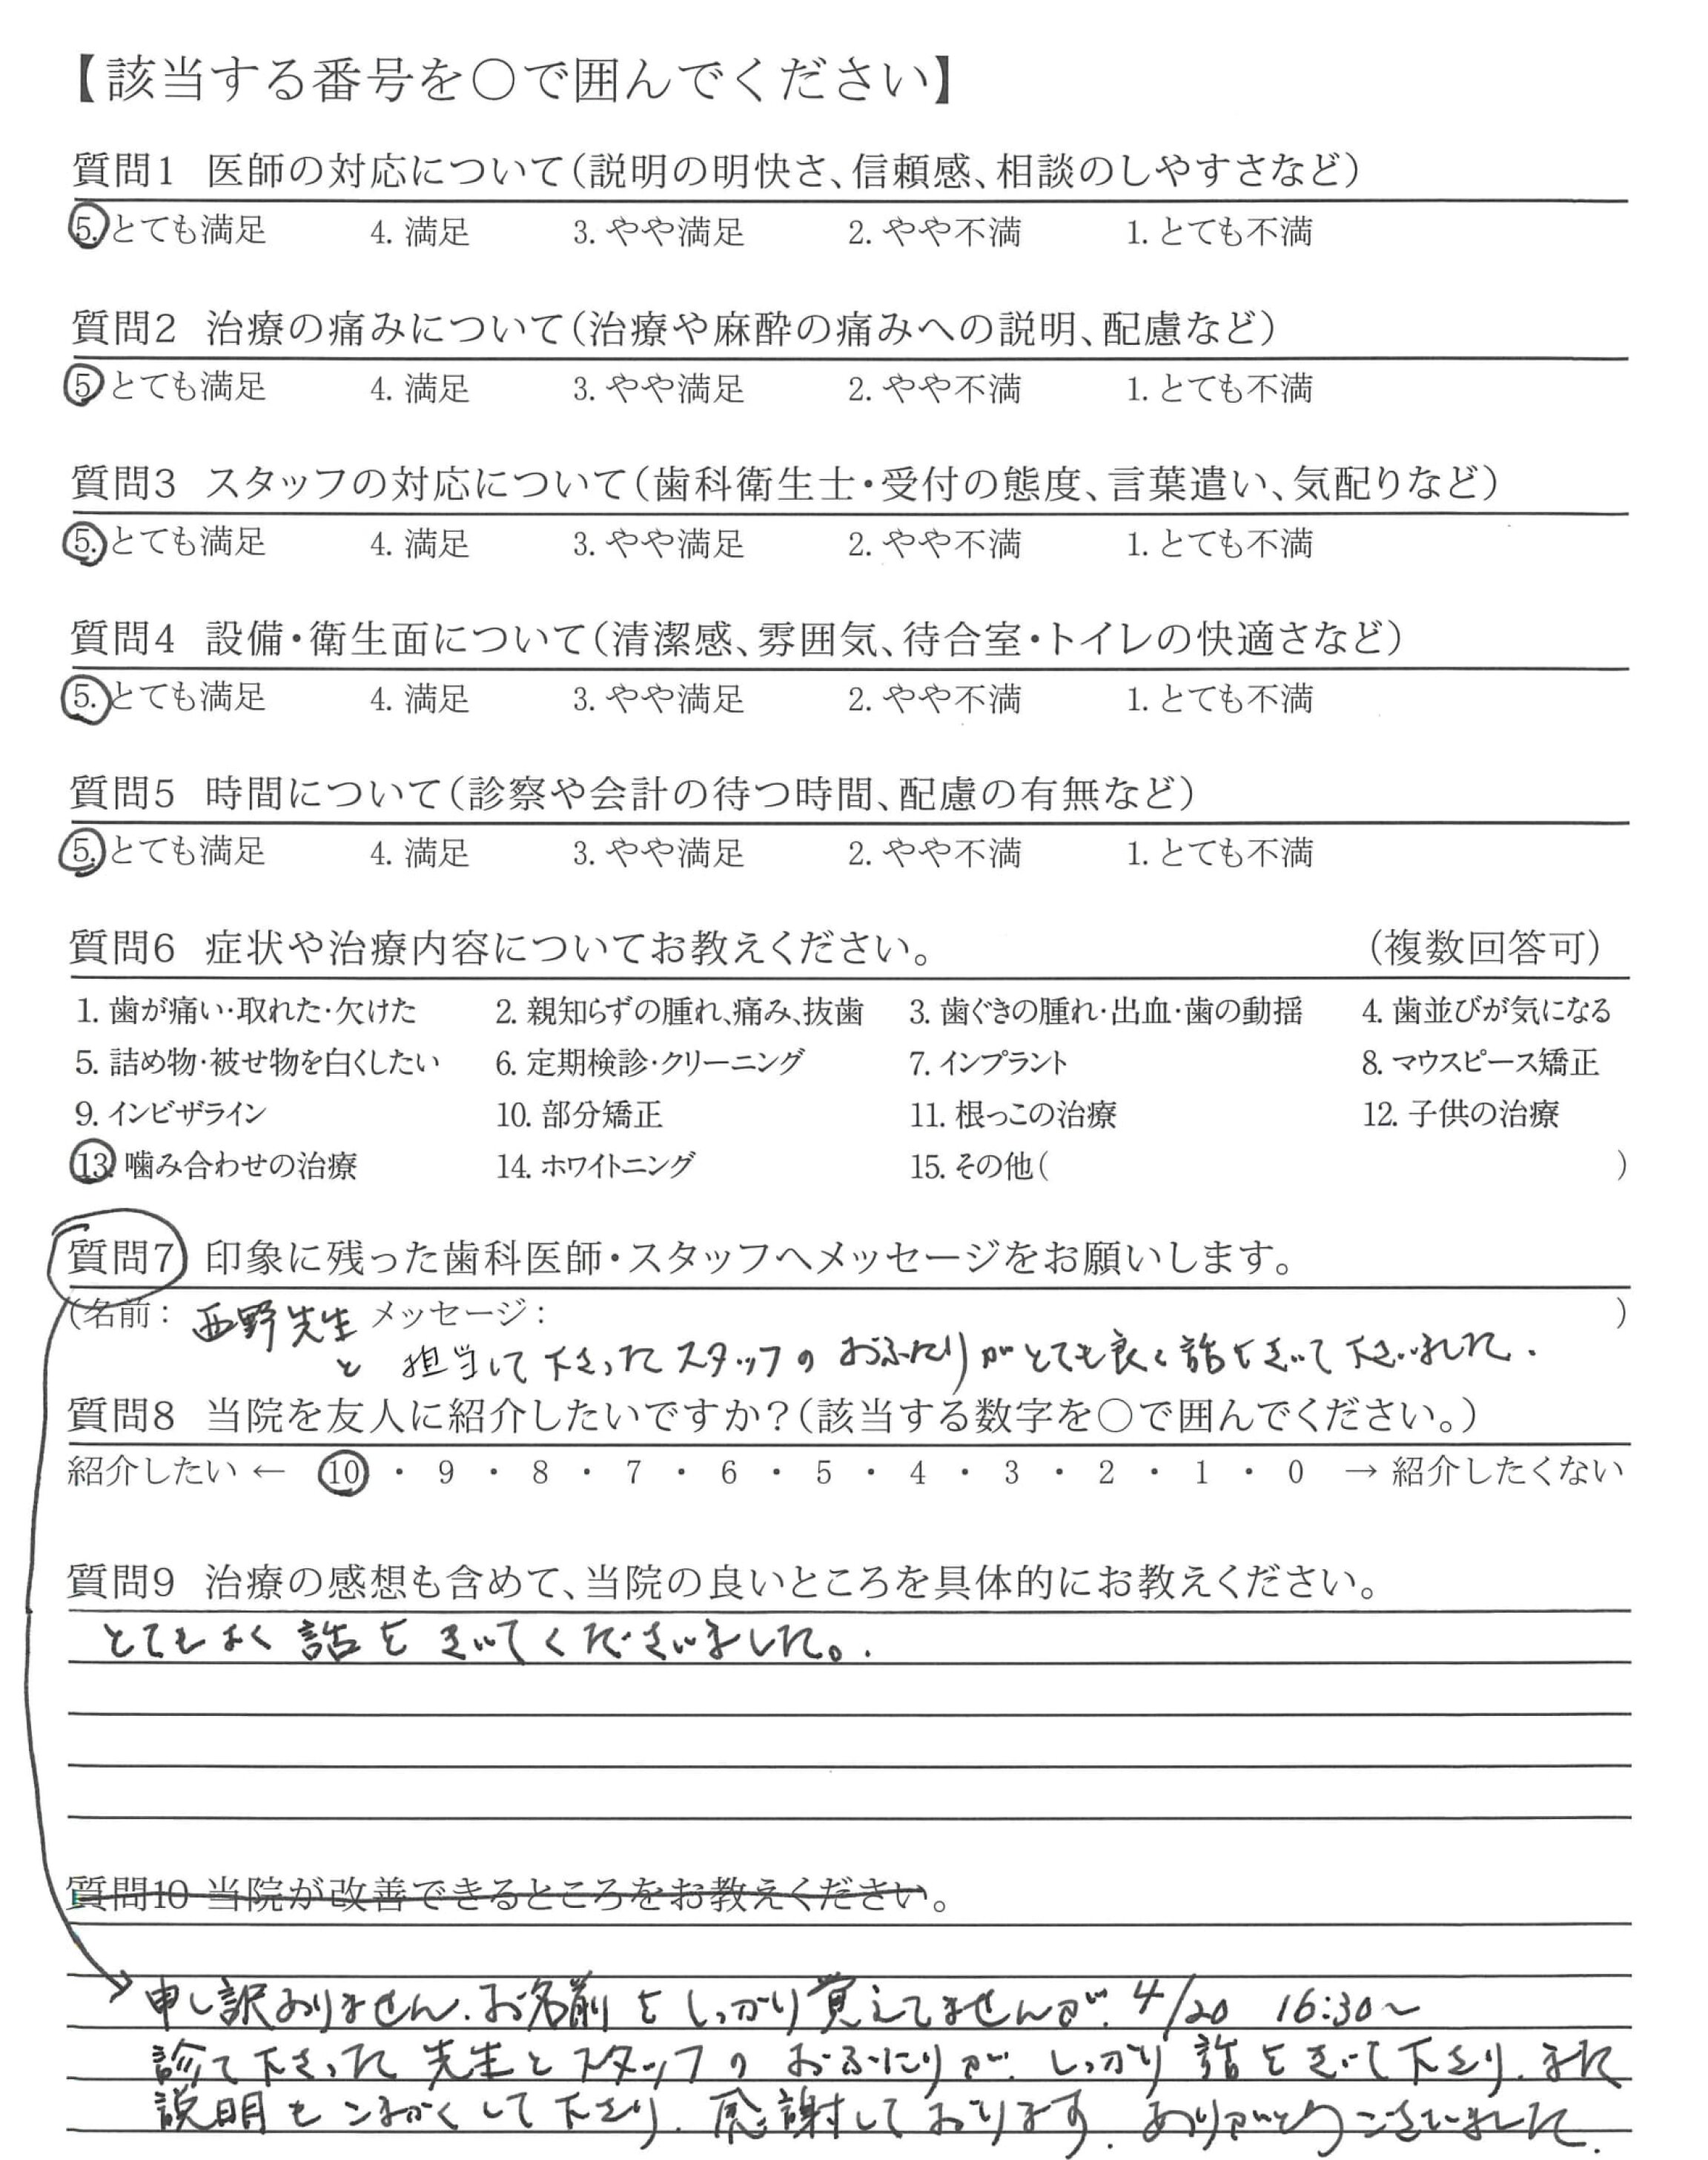 【該当する番号を○で囲んでください】
質問1 医師の対応について(説明の明快さ、信頼感、相談のしやすさなど)
5. とても満足 4. 満足 3. やや満足 2. やや不満 1. とても不満
質問2 治療の痛みについて(治療や麻酔の痛みへの説明、配慮など)
5 とても満足 4. 満足 3. やや満足 2. やや不満 1. とても不満
質問3 スタッフの対応について(歯科衛生士・受付の態度、言葉遣い、気配りなど)
5. とても満足 4. 満足 3. やや満足 2. やや不満 1. とても不満
質問4 設備・衛生面について(清潔感、雰囲気、待合室・トイレの快適さなど)
5. とても満足 4. 満足 3. やや満足 2. やや不満 1. とても不満
質問5 時間について(診察や会計の待つ時間、配慮の有無など)
5. とても満足 4. 満足 3. やや満足 2. やや不満 1. とても不満
質問6 症状や治療内容についてお教えください。 (複数回答可)
1. 歯が痛い・取れた・欠けた 2. 親知らずの腫れ、痛み、抜歯 3. 歯ぐきの腫れ・出血・歯の動揺 4. 歯並びが気になる
5. 詰め物・被せ物を白くしたい 6. 定期検診・クリーニング 7. インプラント 8. マウスピース矯正
9. インビザライン 10. 部分矯正 11. 根っこの治療 12. 子供の治療
13. 噛み合わせの治療 14. ホワイトニング 15. その他( )
質問7 印象に残った歯科医師・スタッフへメッセージをお願いします。
(名前: 西野先生 メッセージ: )
と 担当して下さったスタッフの おふたりがとても良く話をきいて下さいました.
質問8 当院を友人に紹介したいですか?(該当する数字を○で囲んでください。)
紹介したい ← 10 ・ 9 ・ 8 ・ 7 ・ 6 ・ 5 ・ 4 ・ 3 ・ 2 ・ 1 ・ 0 → 紹介したくない
質問9 治療の感想も含めて、当院の良いところを具体的にお教えください。
とてもよく 話を きいてくださいました。.
質問10 当院が改善できるところをお教えください。
申し訳ありません. お名前をしっかり覚えてませんが. 4/20 16:30~
診て下さった 先生とスタッフの おふたりが. しっかり 話をきいて下さり. また
説明もこまかくして下さり. 感謝しております. ありがとうございました.